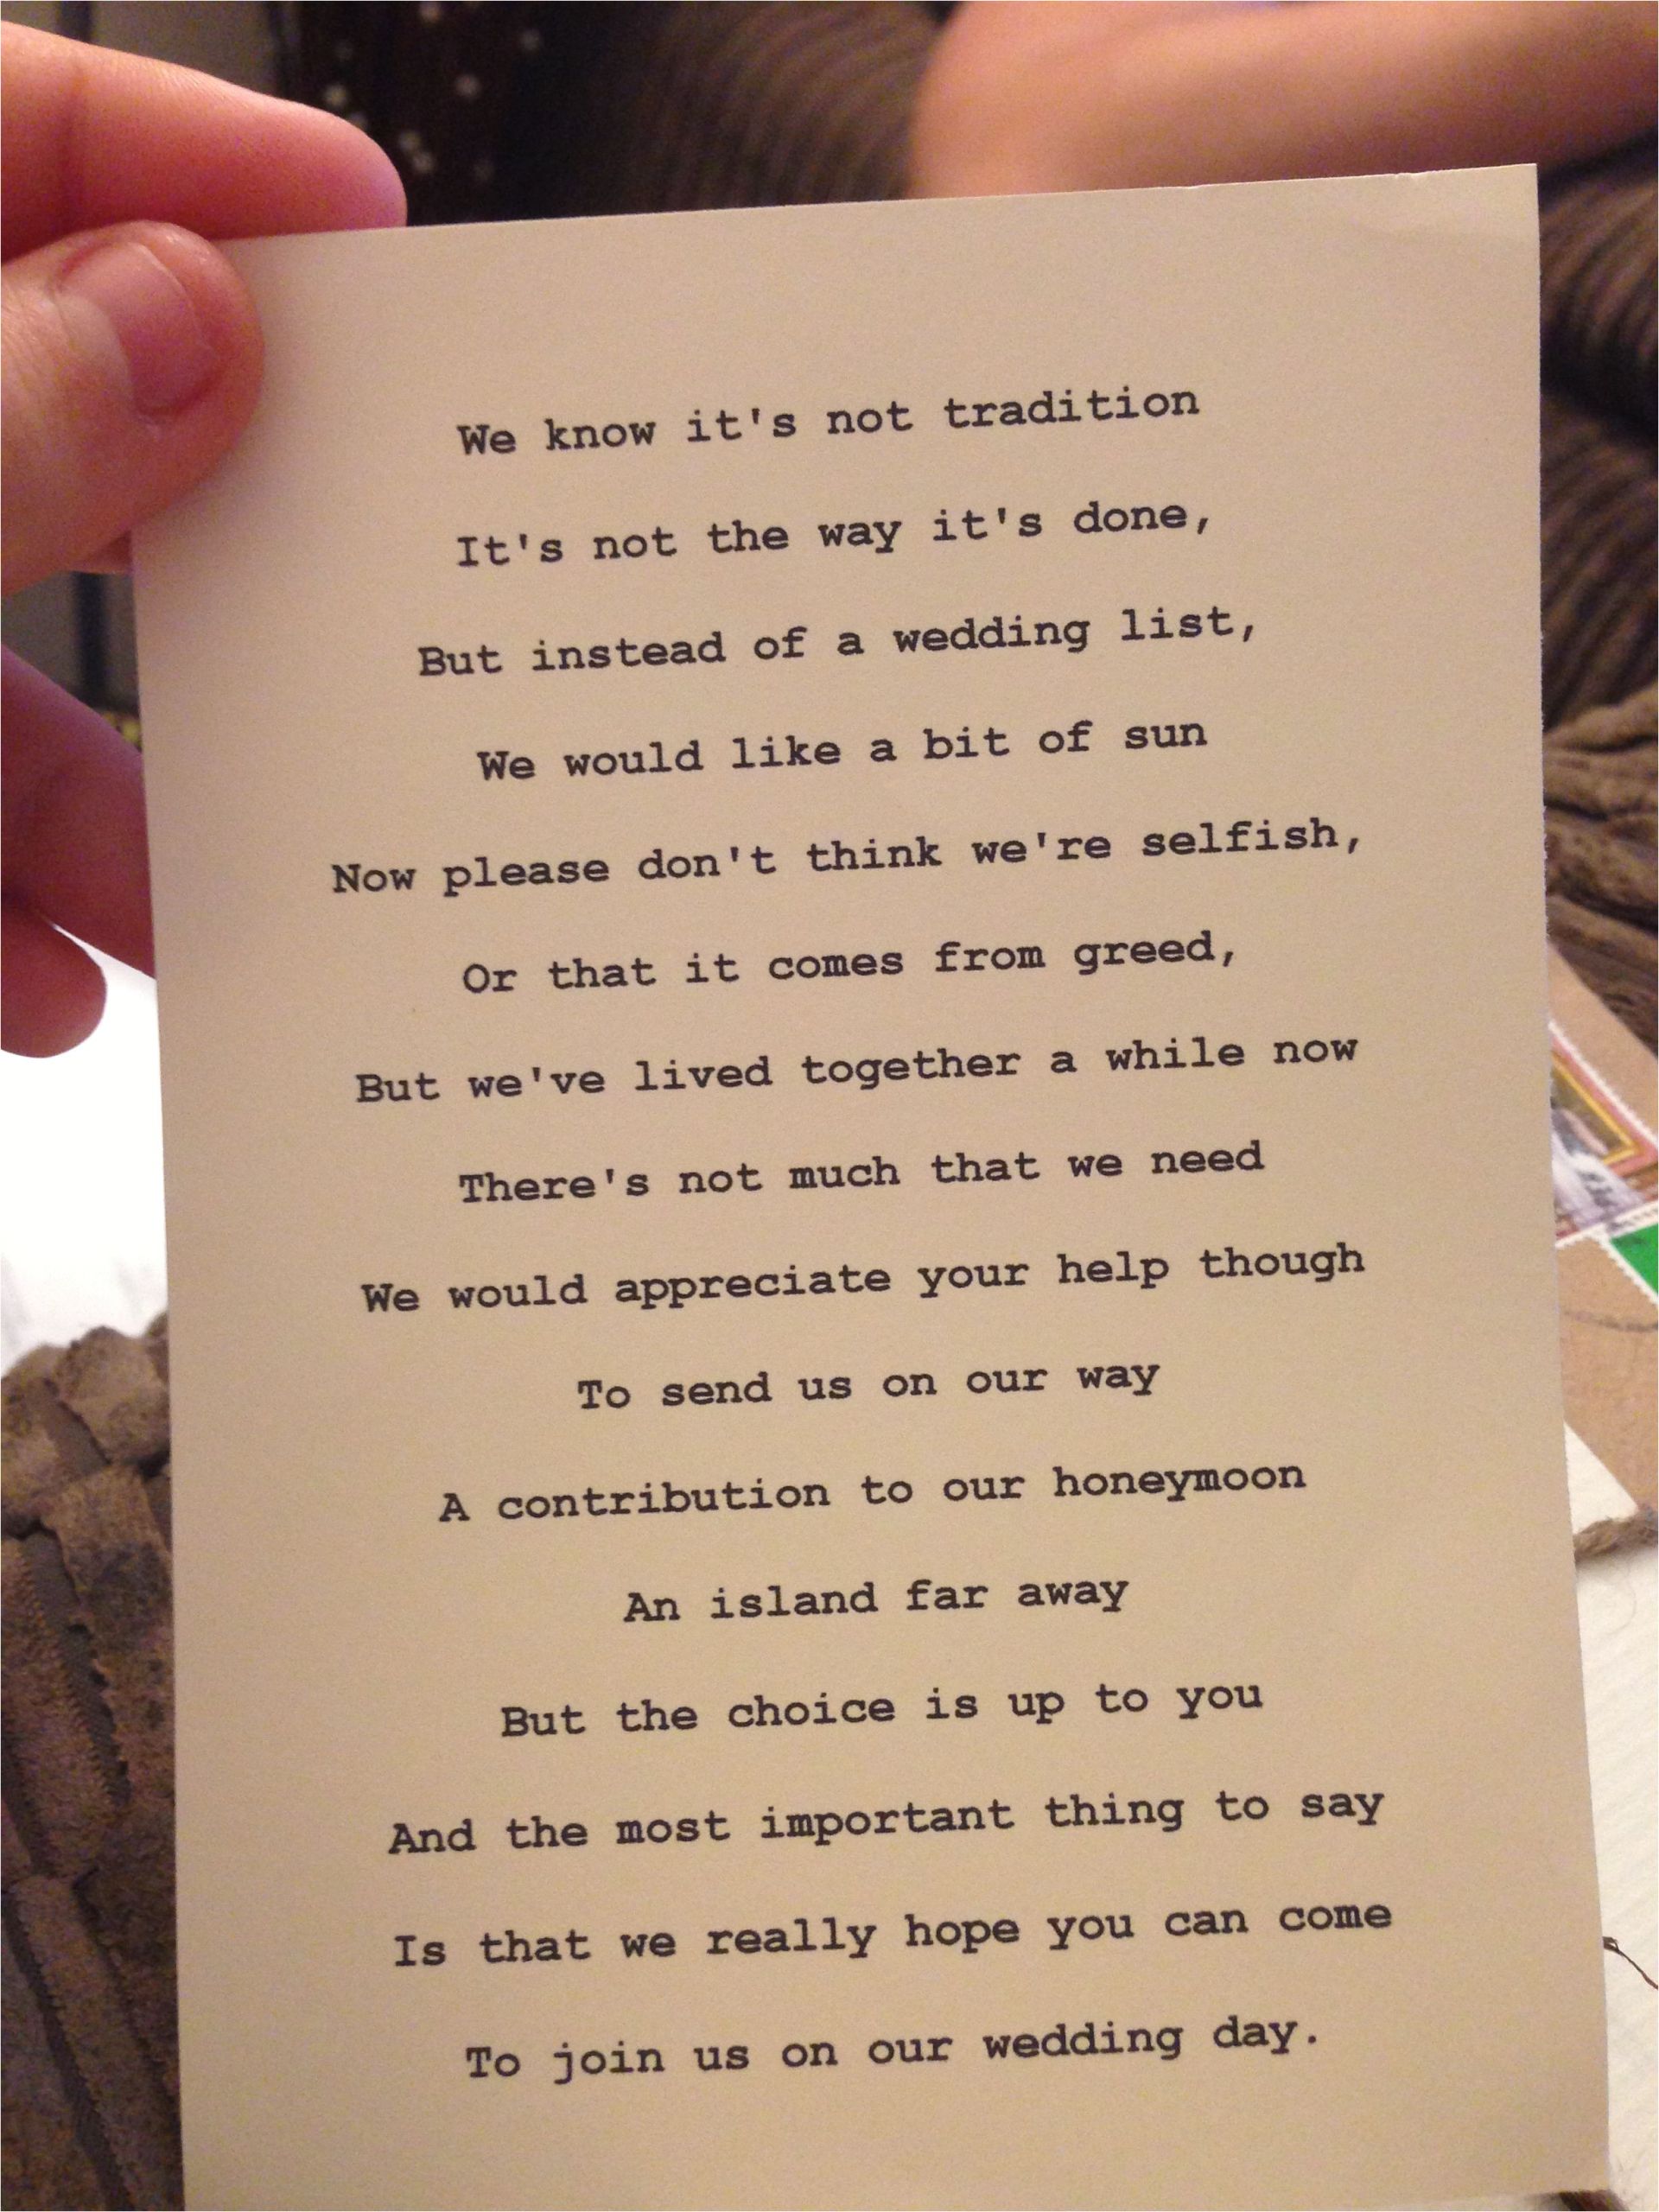 We know it's not tradition
It's not the way it's done,
But instead of a wedding list,
We would like a bit of sun
Now please don't think we're selfish,
Or that it comes from greed,
But we've lived together a while now
There's not much that we need
We would appreciate your help though
To send us on our way
A contribution to our honeymoon
An island far away
But the choice is up to you
And the most important thing to say
Is that we really hope you can come
To join us on our wedding day.